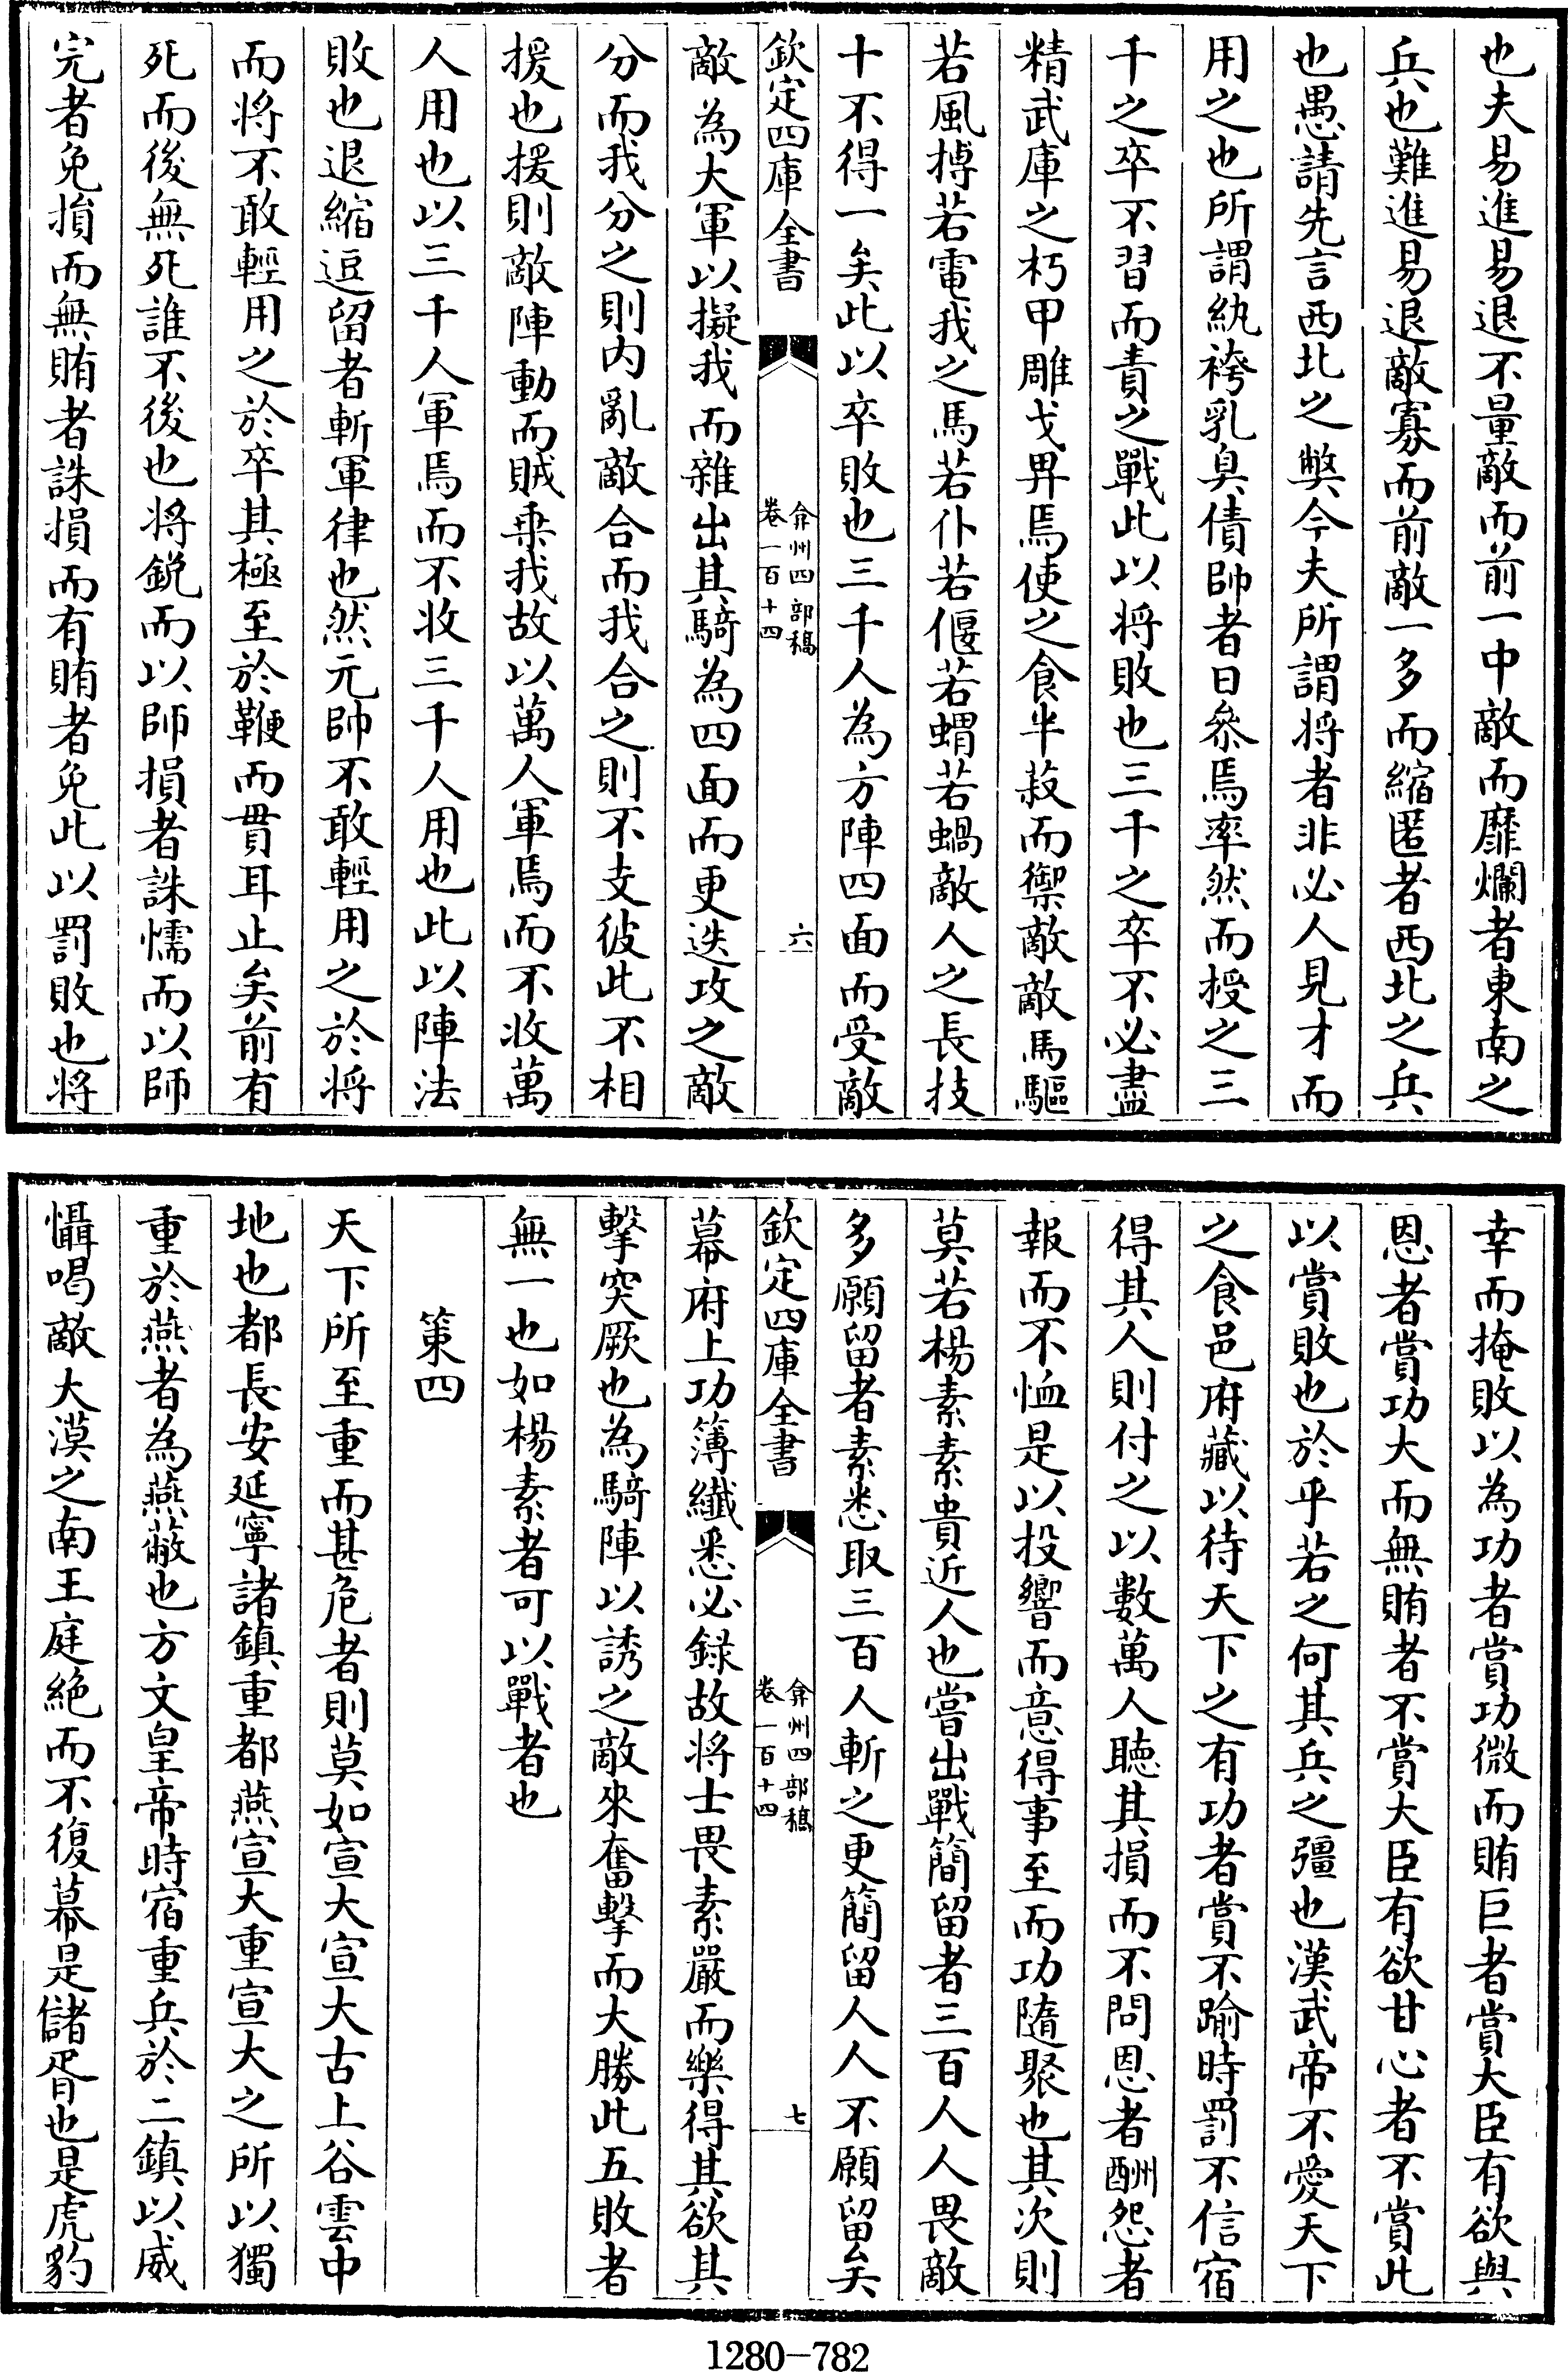 也夫易進易退不量敵而前一中敵而靡爛者東南之
兵也難進易退敵寡而前敵一多而縮匿者西北之兵
也愚請先言西北之弊今夫所謂将者非必人見才而
用之也所謂紈袴乳臭債帥者日叅焉率然而授之三
千之卒不習而責之戰此以将敗也三千之卒不必盡
精武庫之朽甲雕戈畀焉使之食半菽而禦敵敵馬驅
若風搏若電我之馬若仆若偃若蝟若蝸敵人之長技
十不得一矣此以卒敗也三千人為方陣四面而受敵
欽定四庫全書
弇州四部稿
卷一百十四
六
敵為大軍以擬我而雜出其騎為四面而更迭攻之敵
分而我分之則内亂敵合而我合之則不支彼此不相
援也援則敵陣動而賊乗我故以萬人軍焉而不收萬
人用也以三千人軍焉而不收三千人用也此以陣法
敗也退縮逗留者斬軍律也然元帥不敢輕用之於将
而将不敢輕用之於卒其極至於鞭而貫耳止矣前有
死而後無死誰不後也将鋭而以師損者誅懦而以師
完者免損而無賄者誅損而有賄者免此以罰敗也将
幸而掩敗以為功者賞功微而賄巨者賞大臣有欲與
恩者賞功大而無賄者不賞大臣有欲甘心者不賞此
以賞敗也於乎若之何其兵之彊也漢武帝不愛天下
之食邑府藏以待天下之有功者賞不踰時罰不信宿
得其人則付之以數萬人聴其損而不問恩者酬怨者
報而不恤是以投響而意得事至而功隨聚也其次則
莫若楊素素貴近人也嘗出戰簡留者三百人人畏敵
多願留者素悉取三百人斬之更簡留人人不願留矣
欽定四庫全書
弇州四部稿
卷一百十四
七
幕府上功簿纖悉必録故将士畏素嚴而樂得其欲其
擊突厥也為騎陣以誘之敵來奮擊而大勝此五敗者
無一也如楊素者可以戰者也
第四
天下所至重而甚危者則莫如宣大宣大古上谷雲中
地也都長安延寧諸鎮重都燕宣大重宣大之所以獨
重於燕者為燕蔽也方文皇帝時宿重兵於二鎮以威
懾喝敵大漠之南王庭絶而不復幕是儲胥也是虎豹
1280-782